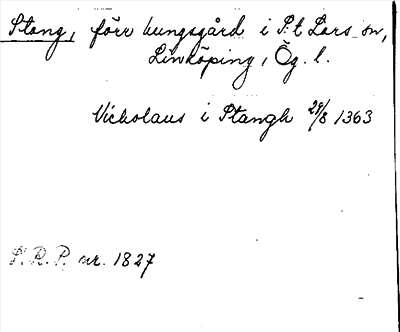 Stang, förr kungsgård i S:t Lars sn,
Linköping, Ög. l.
Nicholaus i Stangh 28/8 1363
S.R.P. nr. 1827